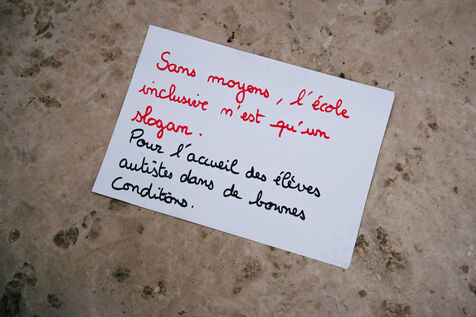 Sans moyens, l'école
inclusive n'est qu'un
slogan.
Pour l'accueil des élèves
autistes dans de bonnes
Conditions.